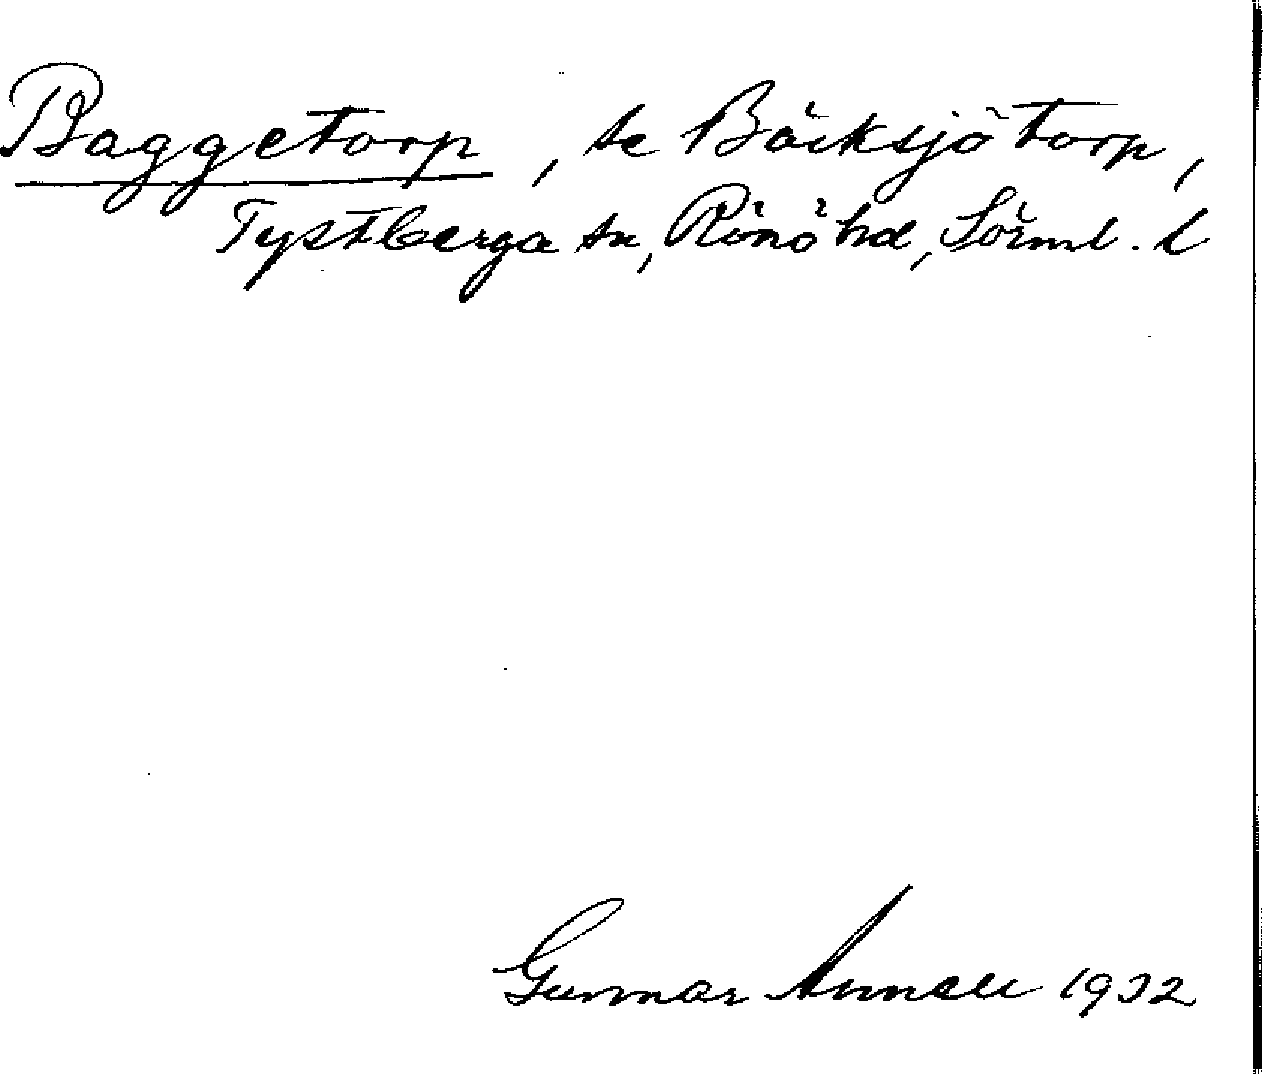 Baggetorp, se Bäcksjötorp,
Tystberga sn, Rönö hd, Sörml. l
Gunnar Annell 1932